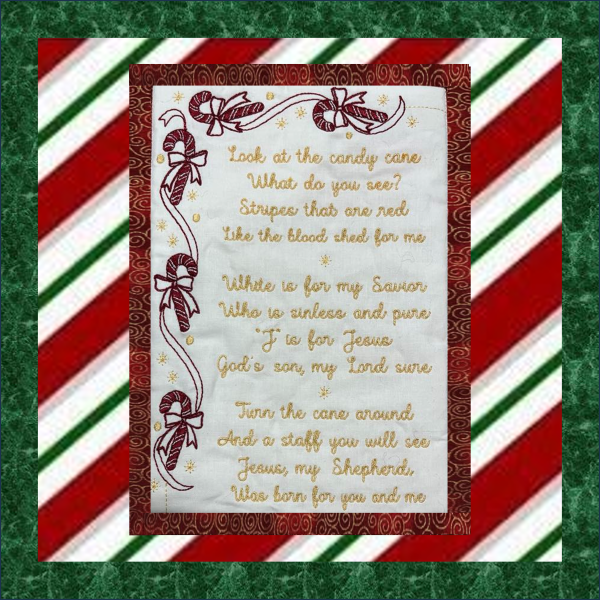 Look at the candy cane
What do you see?
Stripes that are red
Like the blood shed for me
White is for my Savior
Who is sinless and pure
"J" is for Jesus
God's son, my Lord sure
Turn the cane around
And a staff you will see
Jesus, my Shepherd,
Was born for you and me